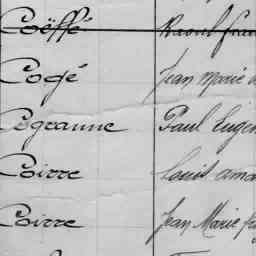 Coëffé Raoul Fran
Cogé Jean Marie
Cogranne Paul Eugen
Coirre Louis ama
Coirre Jean Marie